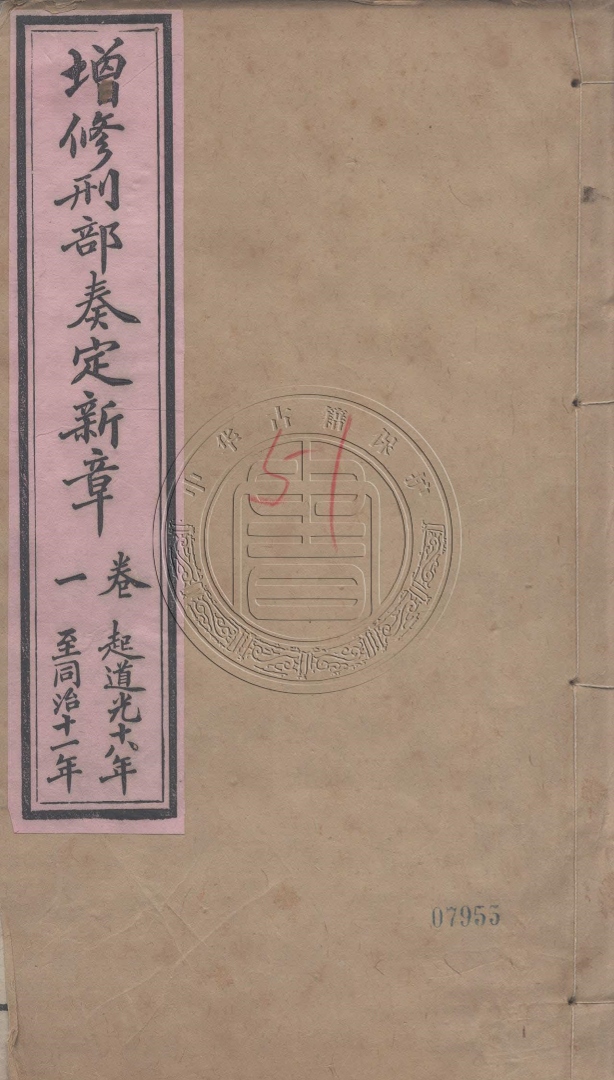 增修刑部奏定新章
卷一
起道光十八年
至同治十一年
中华古籍保护
51
07955